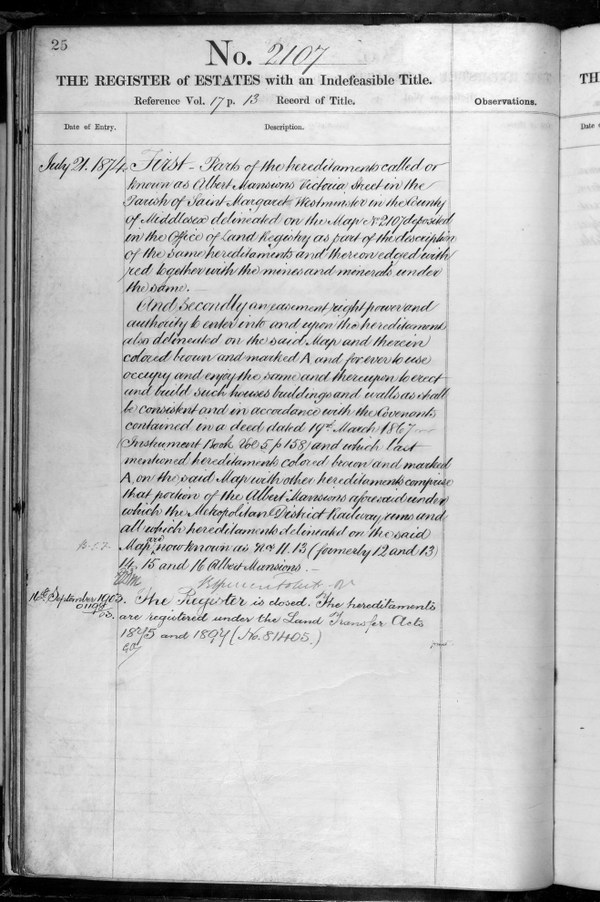 25
No. 2107
THE REGISTER of ESTATES with an Indefeasible Title.
Reference Vol. 17 p. 13 Record of Title.
Observations.
Date of Entry.
Description.
July 21. 1874. First - Parts of the hereditaments called or
known as Albert Mansions Victoria Street in the
Parish of Saint Margaret Westminster in the County
of Middlesex delineated on the Map No 2107 deposited
in the Office of Land Registry as part of the description
of the same hereditaments and thereon edged with
red together with the mines and minerals under
the same. -
And Secondly an easement right power and
authority to enter into and upon the hereditaments
also delineated on the said Map and therein
colored brown and marked A and for ever to use
occupy and enjoy the same and thereupon to erect
and build such houses buildings and walls as shall
be consistent and in accordance with the Covenants
contained in a deed dated 19th March 1867
(Instrument Book Vol 5 p 158) and which last
mentioned hereditaments colored brown and marked
A, on the said Map with other hereditaments comprise
that portion of the Albert Mansions aforesaid under
which the Metropolitan District Railway runs and
all which hereditaments delineated on the said
Map are now known as Nos 11. 13 (formerly 12 and 13)
14, 15 and 16 Albert Mansions. -
16th September 1903. The Register is closed. The hereditaments
are registered under the Land Transfer Acts
1875 and 1897 (No. 81405.)
TH
Date